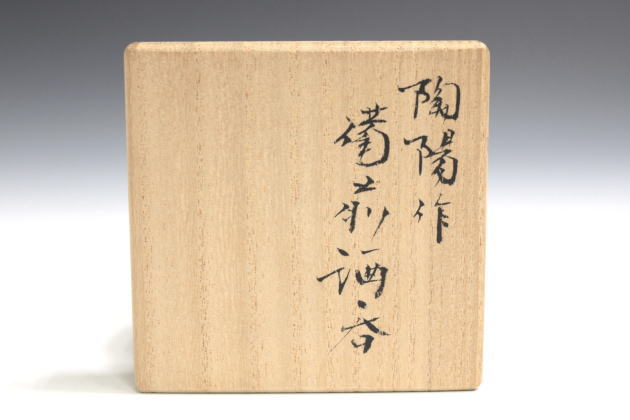 陶陽作
備前酒呑